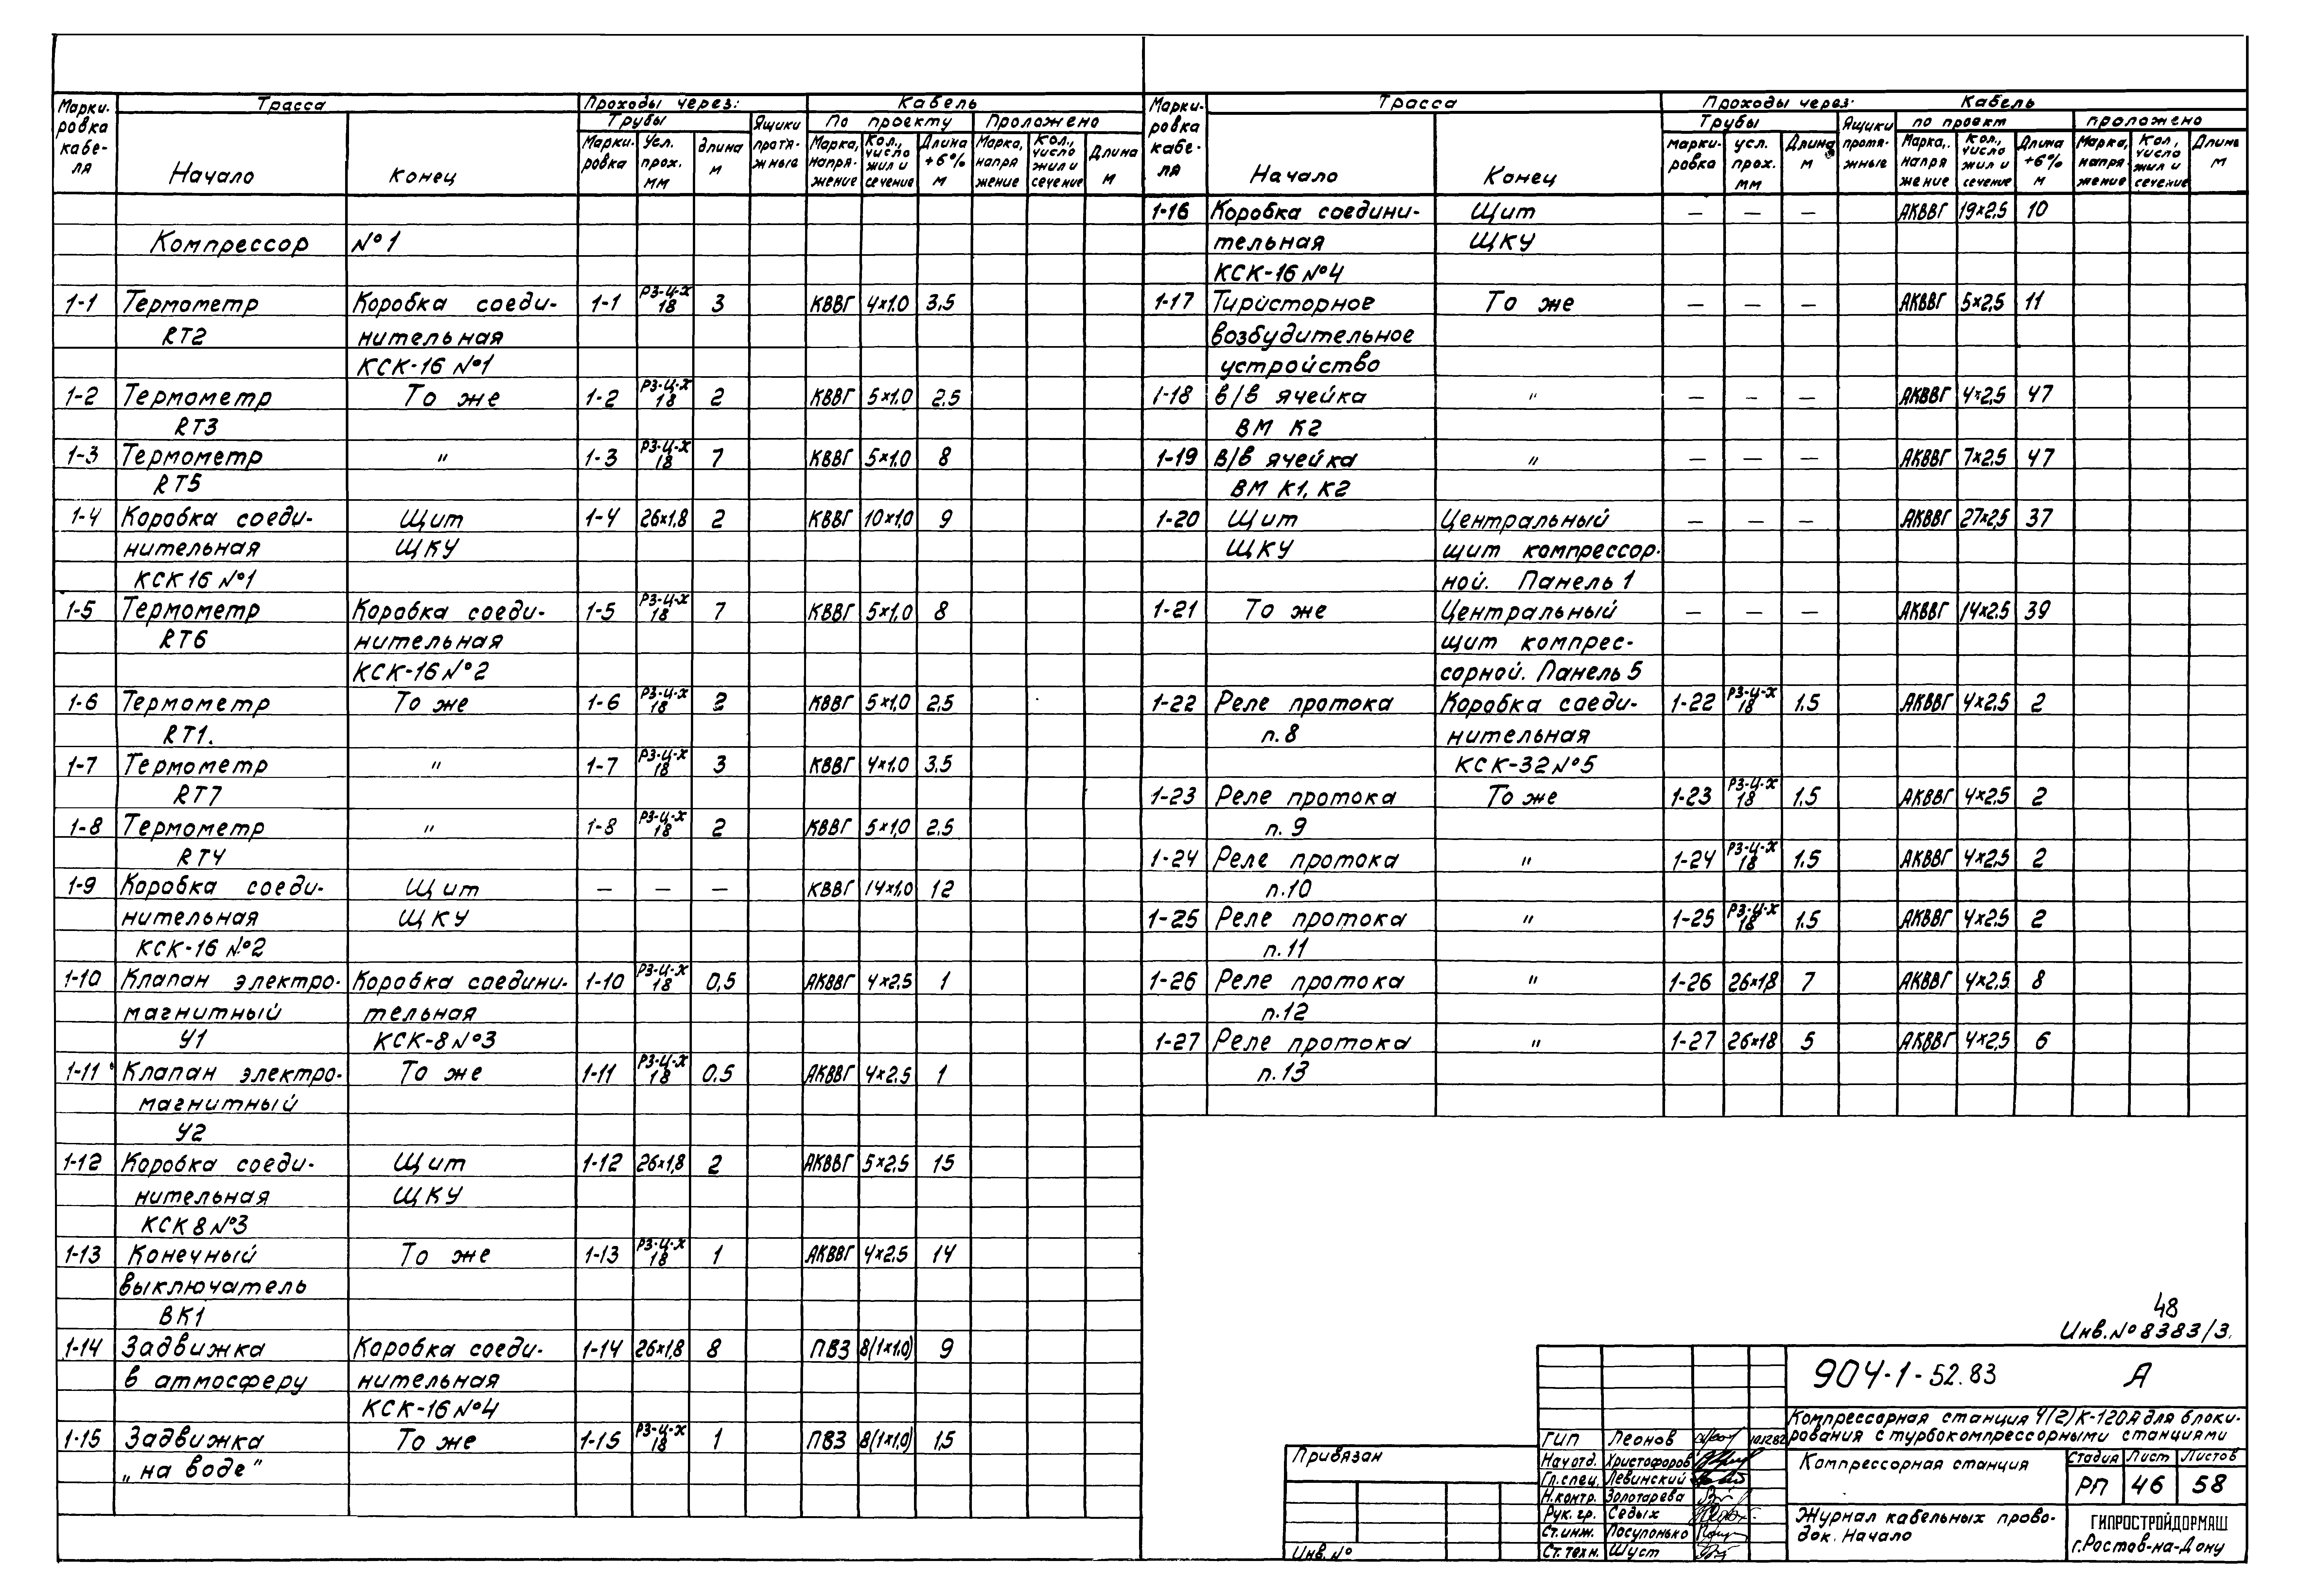 Марки-
ровка
кабе-
ля
Трасса
Проходы через:
Кабель
Трубы
Ящики
протя-
жные
По проекту
Проложено
Начало
Конец
Марки-
ровка
Усл.
прох.
мм
длина
м
Марка,
напря-
жение
Кол.,
число
жил и
сечение
Длина
+6%
м
Марка,
напря
жение
Кол.,
число
жил и
сечение
Длина
м
Компрессор №1
1-1 Термометр Коробка соеди- 1-1 РЗ-Ц-Х 18 3 КВВГ 4×1.0 3,5
RT2 нительная
КСК-16 №1
1-2 Термометр То же 1-2 РЗ-Ц-Х 18 2 КВВГ 5×1.0 2.5
RT3
1-3 Термометр " 1-3 РЗ-Ц-Х 18 7 КВВГ 5×1.0 8
RT5
1-4 Коробка соеди- Щит 1-4 26×1,8 2 КВВГ 10×1,0 9
нительная ЩКУ
КСК 16 №1
1-5 Термометр Коробка соеди- 1-5 РЗ-Ц-Х 18 7 КВВГ 5×1,0 8
RT6 нительная
КСК-16 №2
1-6 Термометр То же 1-6 РЗ-Ц-Х 18 2 КВВГ 5×1,0 2,5
RT1.
1-7 Термометр " 1-7 РЗ-Ц-Х 18 3 КВВГ 4×1.0 3.5
RT7
1-8 Термометр " 1-8 РЗ-Ц-Х 18 2 КВВГ 5×1,0 2.5
RT4
1-9 Коробка соеди- Щит — — — КВВГ 14×1,0 12
нительная ЩКУ
КСК-16 №2
1-10 Клапан электро- Коробка соедини- 1-10 РЗ-Ц-Х 18 0,5 АКВВГ 4×2,5 1
магнитный тельная
У1 КСК-8 №3
1-11 Клапан электро- То же 1-11 РЗ-Ц-Х 18 0.5 АКВВГ 4×2.5 1
магнитный
У2
1-12 Коробка соеди- Щит 1-12 26×1,8 2 АКВВГ 5×2.5 15
нительная ЩКУ
КСК 8 №3
1-13 Конечный То же 1-13 РЗ-Ц-Х 18 1 АКВВГ 4×2.5 14
выключатель
ВК1
1-14 Задвижка Коробка соеди- 1-14 26×1,8 8 ПВ3 8(1×1,0) 9
в атмосферу нительная
КСК-16 №4
1-15 Задвижка То же 1-15 РЗ-Ц-Х 18 1 ПВ3 8(1×1,0) 1,5
„на воде"
Марки-
ровка
кабе-
ля
Трасса
Проходы через:
Кабель
Трубы
Ящики
протя-
жные
по проект
проложено
Начало
Конец
марки-
ровка
усл.
прох.
мм
Длина
м
Марка,
напря
жение
Кол.,
число
жил и
сечение
Длина
+6%
м
Марка,
напря
жение
Кол,
число
жил и
сечение
Длина
м
1-16 Коробка соедини- Щит — — — АКВВГ 19×2,5 10
тельная ЩКУ
КСК-16 №4
1-17 Тиристорное То же — — — АКВВГ 5×2,5 11
возбудительное
устройство
1-18 в/в ячейка " — — — АКВВГ 4×2,5 47
ВМ К2
1-19 в/в ячейка " — — — АКВВГ 7×2,5 47
ВМ К1, К2
1-20 Щит Центральный — — — АКВВГ 27×2,5 37
ЩКУ щит компрессор-
ной. Панель 1
1-21 То же Центральный — — — АКВВГ 14×2.5 39
щит компрес-
сорной. Панель 5
1-22 Реле протока Коробка соеди- 1-22 РЗ-Ц-Х 18 1.5 АКВВГ 4×2,5 2
п.8 нительная
КСК-32 №5
1-23 Реле протока То же 1-23 РЗ-Ц-Х 18 1.5 АКВВГ 4×2,5 2
п. 9
1-24 Реле протока " 1-24 РЗ-Ц-Х 18 1.5 АКВВГ 4×2,5 2
п.10
1-25 Реле протока " 1-25 РЗ-Ц-Х 18 1.5 АКВВГ 4×2,5 2
п.11
1-26 Реле протока " 1-26 26×1,8 7 АКВВГ 4×2,5 8
п.12
1-27 Реле протока " 1-27 26×18 5 АКВВГ 4×2,5 6
п.13
48
Инв.№8383/3.
904-1-52.83 А
Компрессорная станция 4(2)К-120А для блоки-
рования с турбокомпрессорными станциями
Привязан
Инв.№
ГИП Леонов 10.12.82
Нач отд. Христофоров
Гл.спец. Левинский
Н.контр. Золотарева
Рук.гр. Седых
Ст.инж. Посупонько
Ст.техн. Шуст
Компрессорная станция
Стадия Лист Листов
РП 46 58
Журнал кабельных прово-
док. Начало
ГИПРОСТРОЙДОРМАШ
г.Ростов-на-Дону